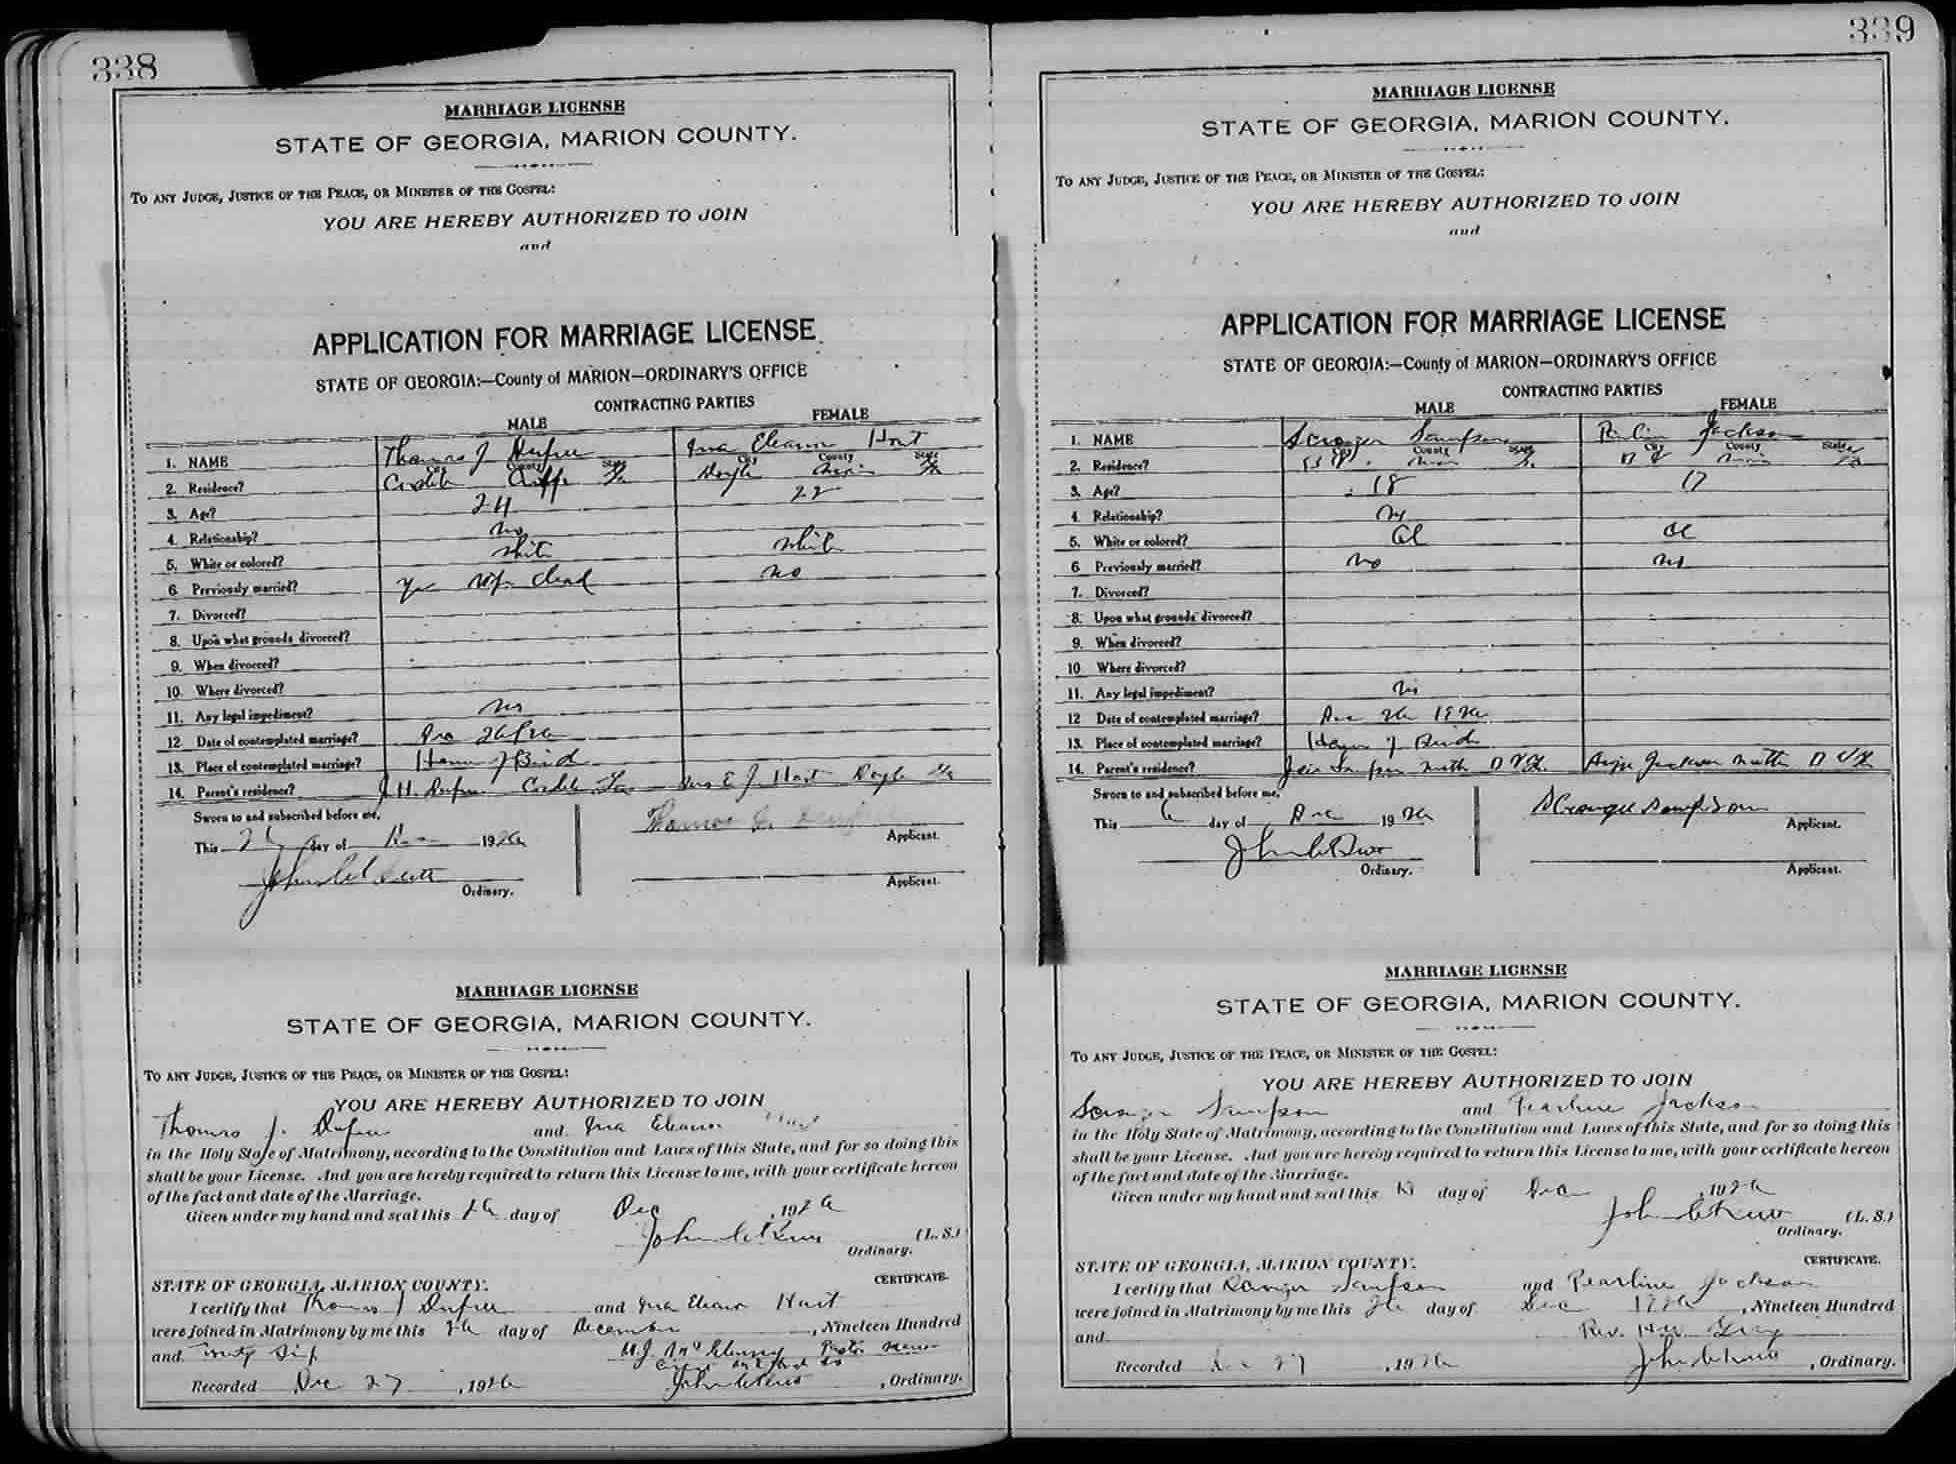 338
MARRIAGE LICENSE
STATE OF GEORGIA, MARION COUNTY.
TO ANY JUDGE, JUSTICE OF THE PEACE, OR MINISTER OF THE GOSPEL:
YOU ARE HEREBY AUTHORIZED TO JOIN
and
APPLICATION FOR MARRIAGE LICENSE
STATE OF GEORGIA:—County of MARION—ORDINARY'S OFFICE
CONTRACTING PARTIES
MALE FEMALE
1. NAME Thomas J Dupree Ina Eleanor Hart
City County State City County State
2. Residence? Cordele Crisp Ga Doyle Marion Ga
3. Age? 24 22
4. Relationship? no
5. White or colored? White White
6 Previously married? yes wife dead no
7. Divorced?
8. Upon what grounds divorced?
9. When divorced?
10. Where divorced?
11. Any legal impediment? no
12 Date of contemplated marriage? Dec 26
13. Place of contemplated marriage? Home of Bride
14. Parent's residence? J.H. Dupree Cordele Ga Mrs E J Hart Doyle Ga
Sworn to and subscribed before me,
This day of 1926 Thomas J. Applicant.
Ordinary. Applicant.
MARRIAGE LICENSE
STATE OF GEORGIA, MARION COUNTY.
TO ANY JUDGE, JUSTICE OF THE PEACE, OR MINISTER OF THE GOSPEL:
YOU ARE HEREBY AUTHORIZED TO JOIN
Thomas J. Dupree and Ina Eleanor Hart
in the Holy State of Matrimony, according to the Constitution and Laws of this State, and for so doing this
shall be your License. And you are hereby required to return this License to me, with your certificate hereon
of the fact and date of the Marriage.
Given under my hand and seal this 26 day of Dec , 1926
John (L. S.)
Ordinary.
STATE OF GEORGIA, MARION COUNTY. CERTIFICATE.
I certify that Thomas J Dupree and Ina Eleanor Hart
were joined in Matrimony by me this 26 day of December , Nineteen Hundred
and Twenty Six Pastor
Recorded Dec 27 , 1926 John , Ordinary.
339
MARRIAGE LICENSE
STATE OF GEORGIA, MARION COUNTY.
TO ANY JUDGE, JUSTICE OF THE PEACE, OR MINISTER OF THE GOSPEL:
YOU ARE HEREBY AUTHORIZED TO JOIN
and
APPLICATION FOR MARRIAGE LICENSE
STATE OF GEORGIA:—County of MARION—ORDINARY'S OFFICE
CONTRACTING PARTIES
MALE FEMALE
1. NAME Sampson Jackson
City County State City County State
2. Residence? Ga Ga
3. Age? 18 17
4. Relationship? no
5. White or colored? Col Col
6 Previously married? no no
7. Divorced?
8. Upon what grounds divorced?
9. When divorced?
10 Where divorced?
11. Any legal impediment? no
12 Date of contemplated marriage? Dec 26 1926
13. Place of contemplated marriage? Home of Bride
14. Parent's residence? Sampson Jackson
Sworn to and subscribed before me,
This day of Dec 1926 Sampson Applicant.
John
Ordinary. Applicant.
MARRIAGE LICENSE
STATE OF GEORGIA, MARION COUNTY.
TO ANY JUDGE, JUSTICE OF THE PEACE, OR MINISTER OF THE GOSPEL:
YOU ARE HEREBY AUTHORIZED TO JOIN
Sampson and Pearline Jackson
in the Holy State of Matrimony, according to the Constitution and Laws of this State, and for so doing this
shall be your License. And you are hereby required to return this License to me, with your certificate hereon
of the fact and date of the Marriage.
Given under my hand and seal this day of Dec , 1926
John (L. S.)
Ordinary.
STATE OF GEORGIA, MARION COUNTY. CERTIFICATE.
I certify that Sampson and Pearline Jackson
were joined in Matrimony by me this 26 day of Dec 1926 , Nineteen Hundred
and Rev. H.W. Gray
Recorded Dec 27 , 1926 John , Ordinary.